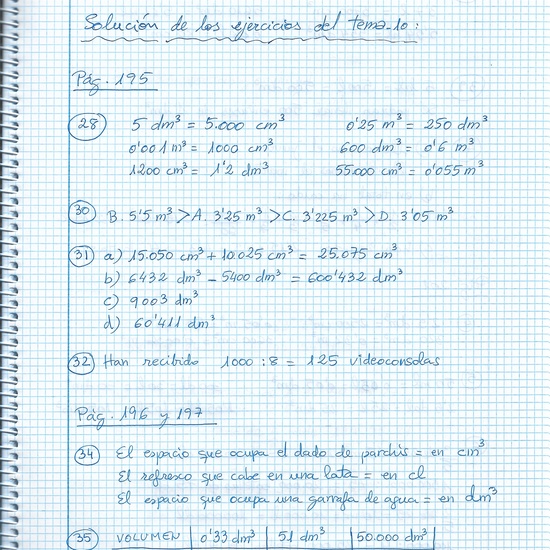 Solución de los ejercicios del tema-10:
Pág. 195
28 5 dm³ = 5.000 cm³ 0'25 m³ = 250 dm³
0'001 m³ = 1000 cm³ 600 dm³ = 0'6 m³
1200 cm³ = 1'2 dm³ 55.000 cm³ = 0'055 m³
30 B. 5'5 m³ > A. 3'25 m³ > C. 3'225 m³ > D. 3'05 m³
31 a) 15.050 cm³ + 10.025 cm³ = 25.075 cm³
b) 6432 dm³ - 5400 dm³ = 600'432 dm³
c) 9003 dm³
d) 60'411 dm³
32 Han recibido 1000 : 8 = 125 videoconsolas
Pág. 196 y 197
34 El espacio que ocupa el dado de parchís = en cm³
El refresco que cabe en una lata = en cl
El espacio que ocupa una garrafa de agua = en dm³
35 VOLUMEN | 0'33 dm³ | 51 dm³ | 50.000 dm³ |